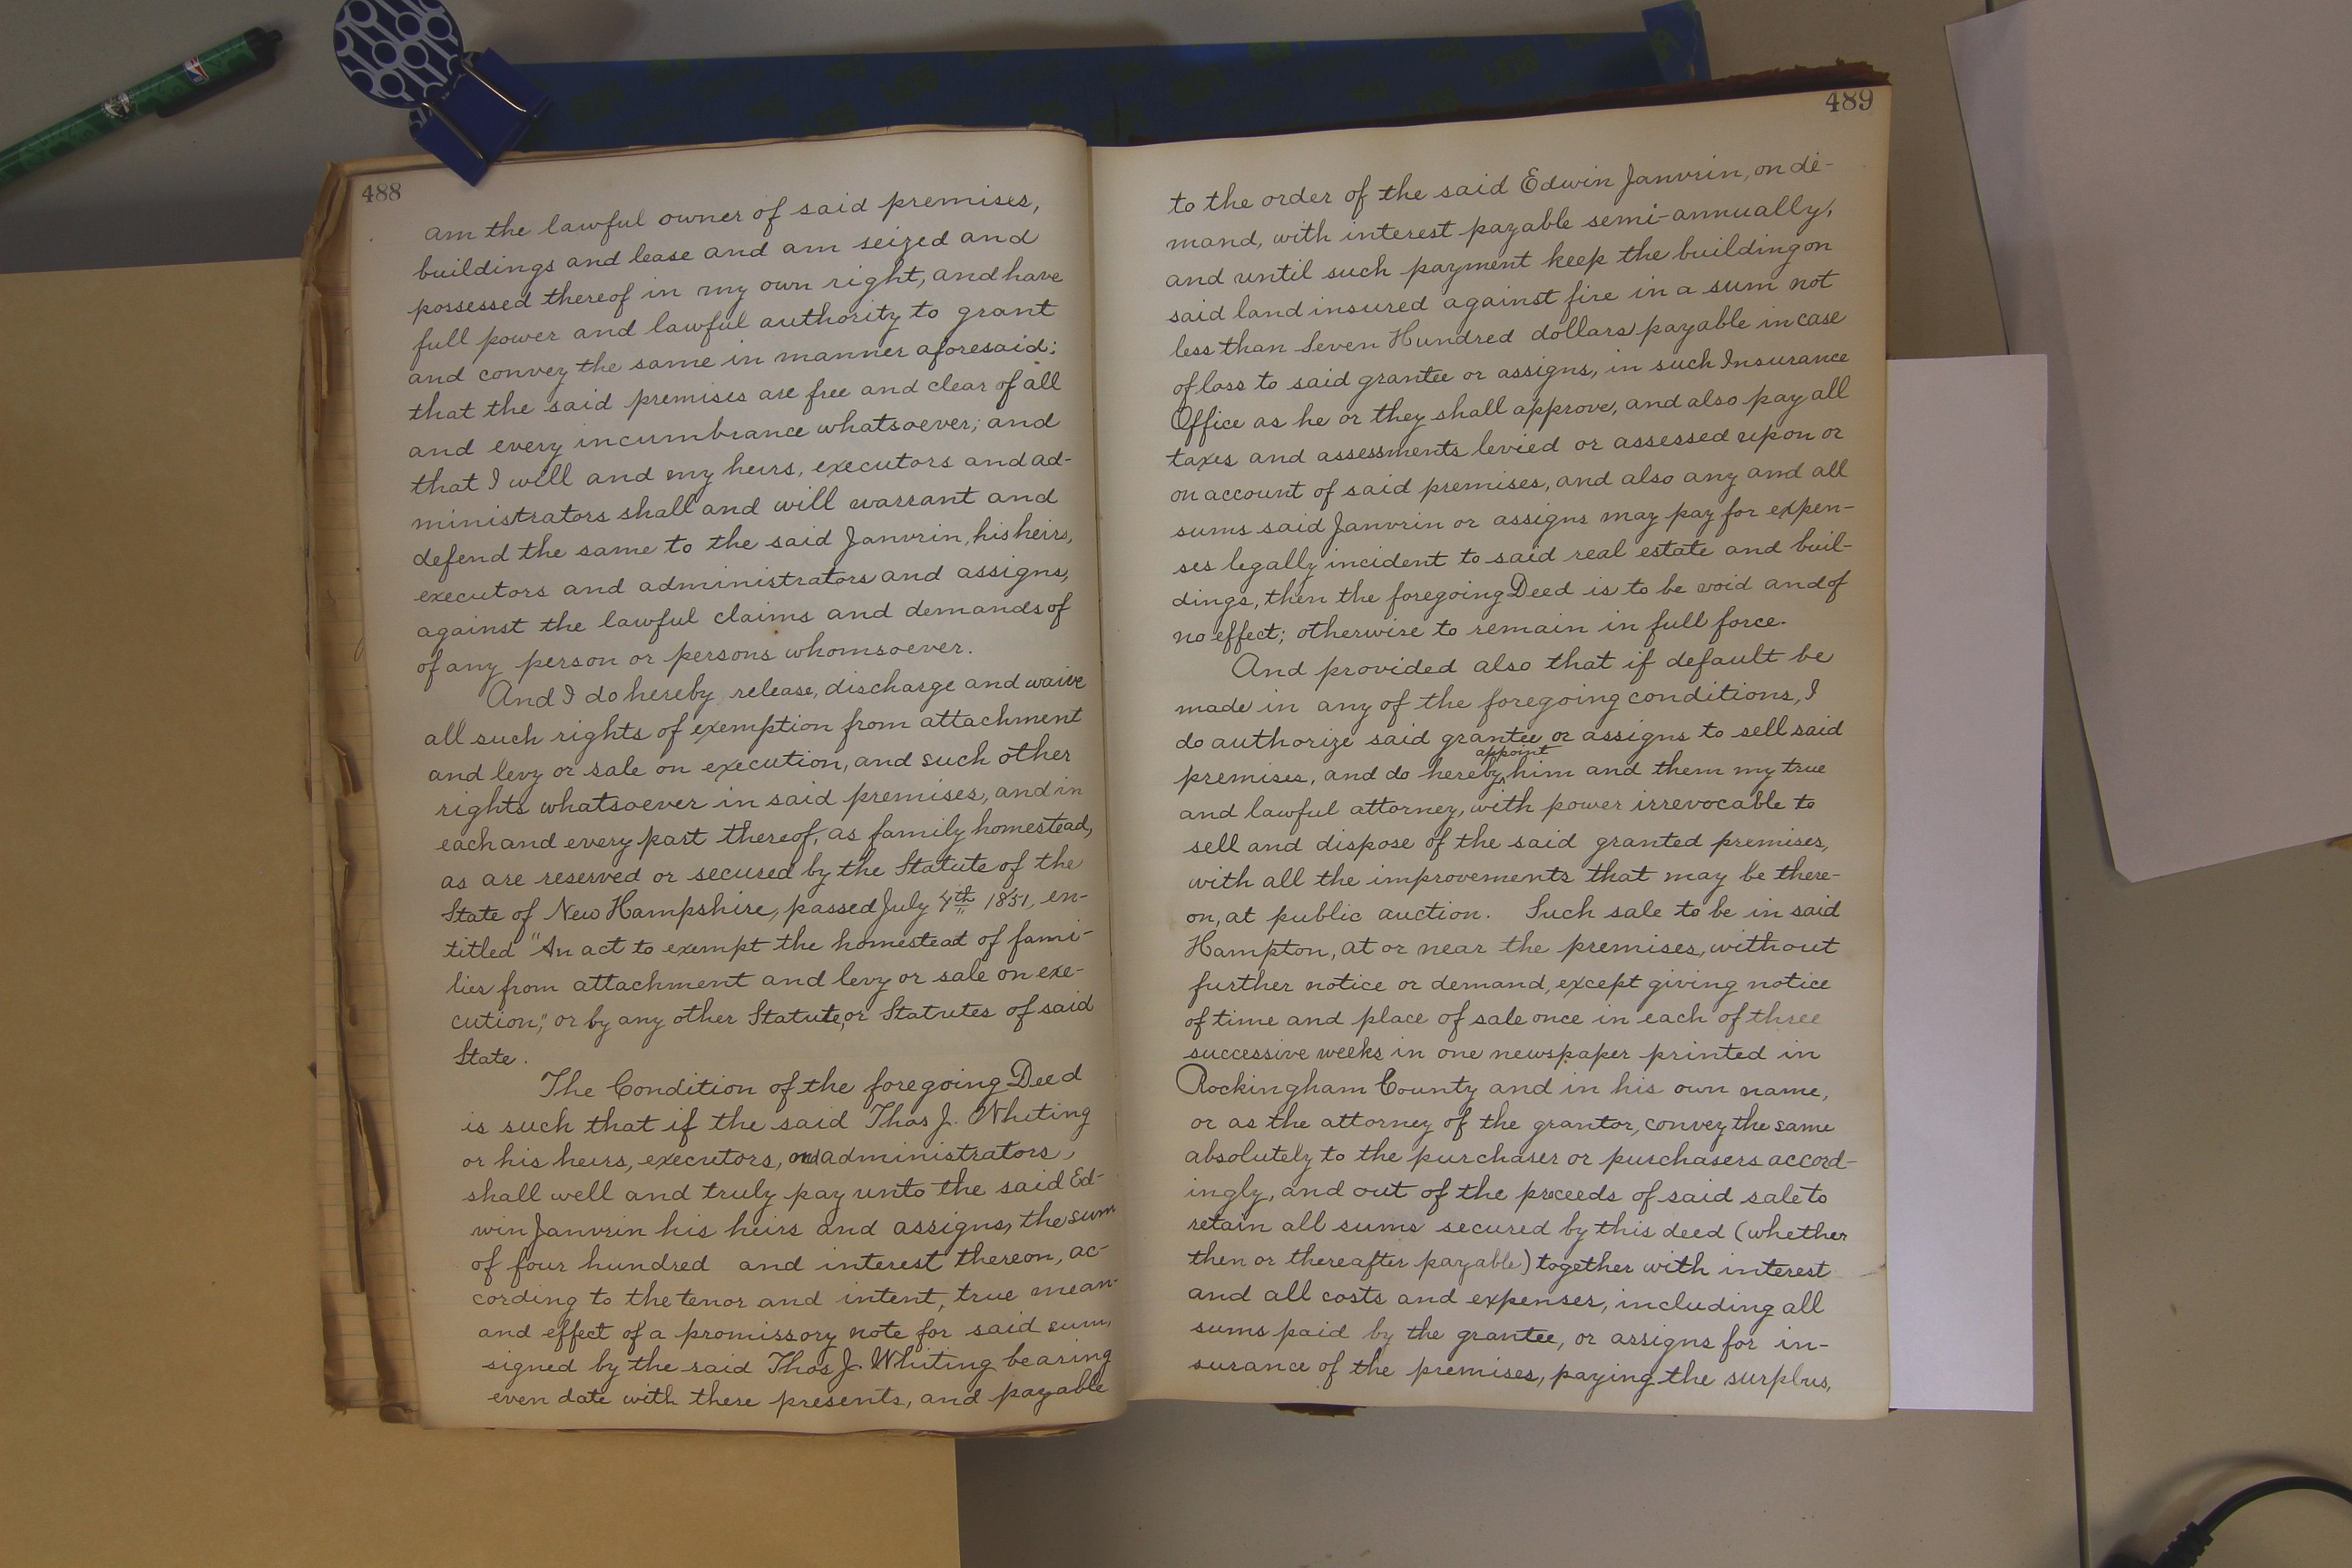 488
am the lawful owner of said premises,
buildings and lease and am seized and
possessed thereof in my own right, and have
full power and lawful authority to grant
and convey the same in manner aforesaid;
that the said premises are free and clear of all
and every incumbrance whatsoever; and
that I will and my heirs, executors and ad-
ministrators shall and will warrant and
defend the same to the said Janvrin, his heirs,
executors and administrators and assigns,
against the lawful claims and demands of
of any person or persons whomsoever.
And I do hereby release, discharge and waive
all such rights of exemption from attachment
and levy or sale on execution, and such other
rights whatsoever in said premises, and in
each and every part thereof, as family homestead,
as are reserved or secured by the Statute of the
State of New Hampshire, passed July 4th 1851, en-
titled "An act to exempt the homestead of fami-
lies from attachment and levy or sale on exe-
cution," or by any other Statute, or Statutes of said
State.
The Condition of the foregoing Deed
is such that if the said Thos J. Whiting
or his heirs, executors, and administrators,
shall well and truly pay unto the said Ed-
win Janvrin his heirs and assigns, the sum
of four hundred and interest thereon, ac-
cording to the tenor and intent, true mean-
and effect of a promissory note for said sum,
signed by the said Thos J. Whiting bearing
even date with these presents, and payable
489
to the order of the said Edwin Janvrin, on de-
mand, with interest payable semi-annually,
and until such payment keep the building on
said land insured against fire in a sum not
less than Seven Hundred dollars payable in case
of loss to said grantee or assigns, in such Insurance
Office as he or they shall approve, and also pay all
taxes and assessments levied or assessed upon or
on account of said premises, and also any and all
sums said Janvrin or assigns may pay for expen-
ses legally incident to said real estate and buil-
dings, then the foregoing Deed is to be void and of
no effect; otherwise to remain in full force.
And provided also that if default be
made in any of the foregoing conditions, I
do authorize said grantee or assigns to sell said
premises, and do hereby appoint him and them my true
and lawful attorney, with power irrevocable to
sell and dispose of the said granted premises,
with all the improvements that may be there-
on, at public auction. Such sale to be in said
Hampton, at or near the premises, without
further notice or demand, except giving notice
of time and place of sale once in each of three
successive weeks in one newspaper printed in
Rockingham County and in his own name,
or as the attorney of the grantor, convey the same
absolutely to the purchaser or purchasers accord-
ingly, and out of the proceeds of said sale to
retain all sums secured by this deed (whether
then or thereafter payable) together with interest
and all costs and expenses, including all
sums paid by the grantee, or assigns for in-
surance of the premises, paying the surplus,